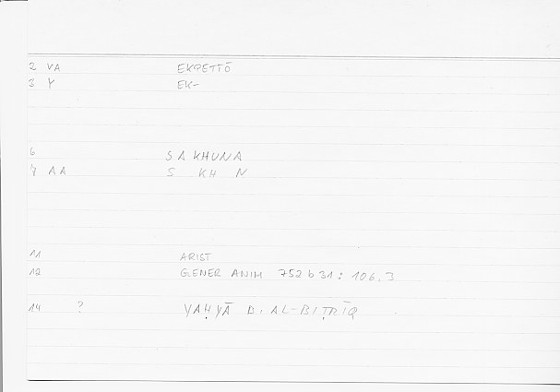 2 VA EKPETTŌ
3 Y EK-
6 SAKHUNA
7 AA S KH N
11 ARIST
12 GENER ANIM 752 b 31 : 106.3
14 ? YAḤYĀ B. AL-BIṬRĪQ